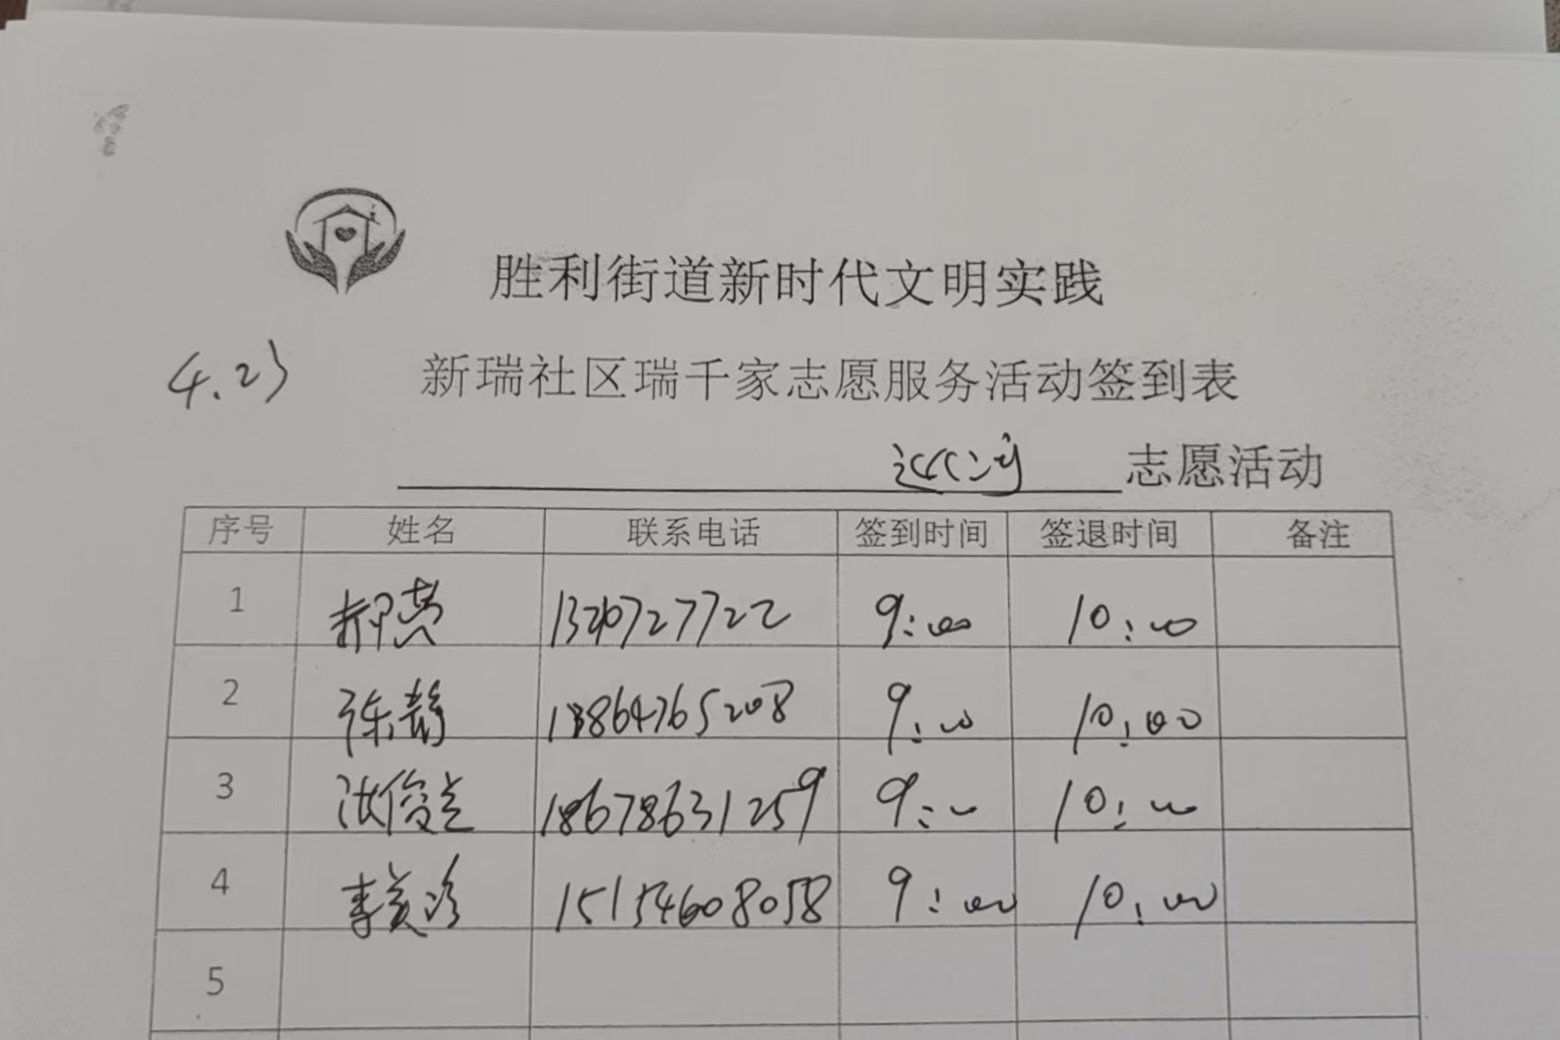 胜利街道新时代文明实践
4.23
新瑞社区瑞千家志愿服务活动签到表
巡河 志愿活动
序号 姓名 联系电话 签到时间 签退时间 备注
1 郝荣 9:00 10:00
2 张静 13864765208 9:00 10:00
3 俊兰 18678631259 9:00 10:00
4 李美珍 15154608058 9:00 10:00
5